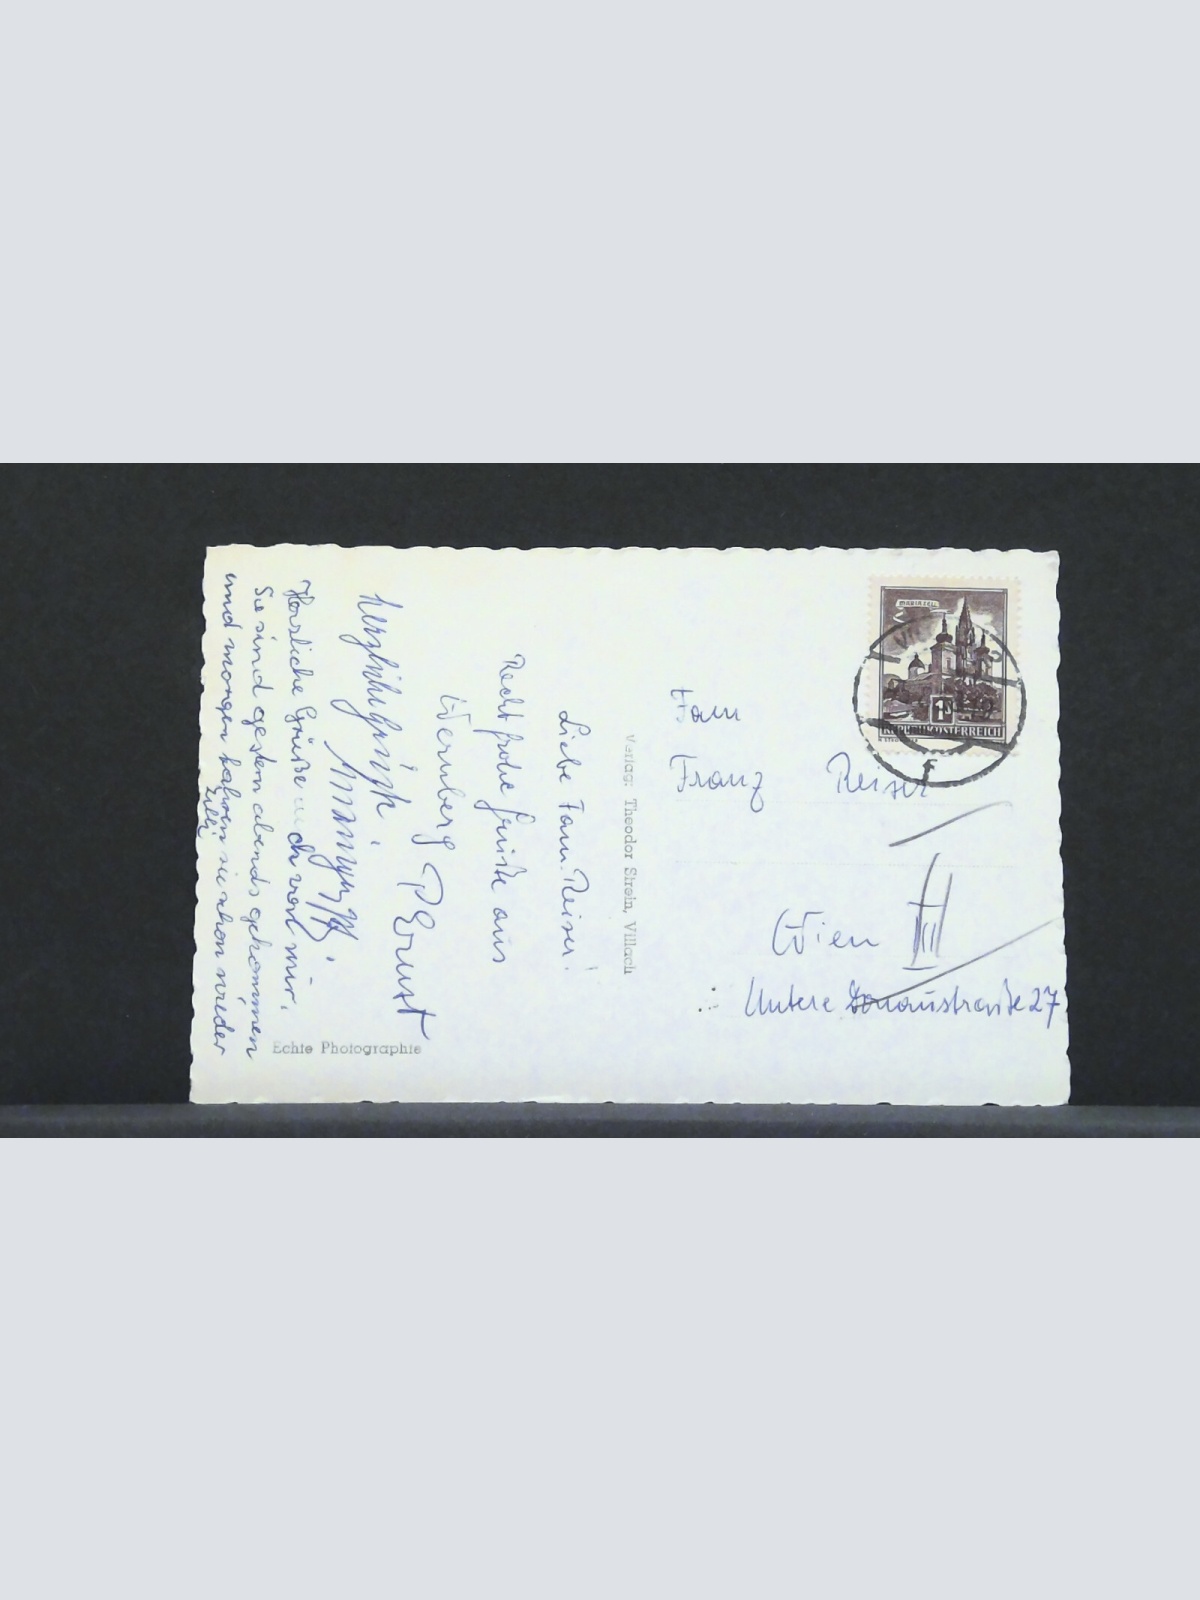 Liebe Fam. Reiser!
Recht frohe Grüße aus
Wernberg P Ernst
Herzliche Grüße auch von mir.
Sie sind gestern abends gekommen
und morgen fahren sie schon wieder
Fam
Franz Reiser
Wien III
Untere Donaustraße 27
Verlag: Theodor Strein, Villach
Echte Photographie
MARIAZELL
1 S
REPUBLIK ÖSTERREICH